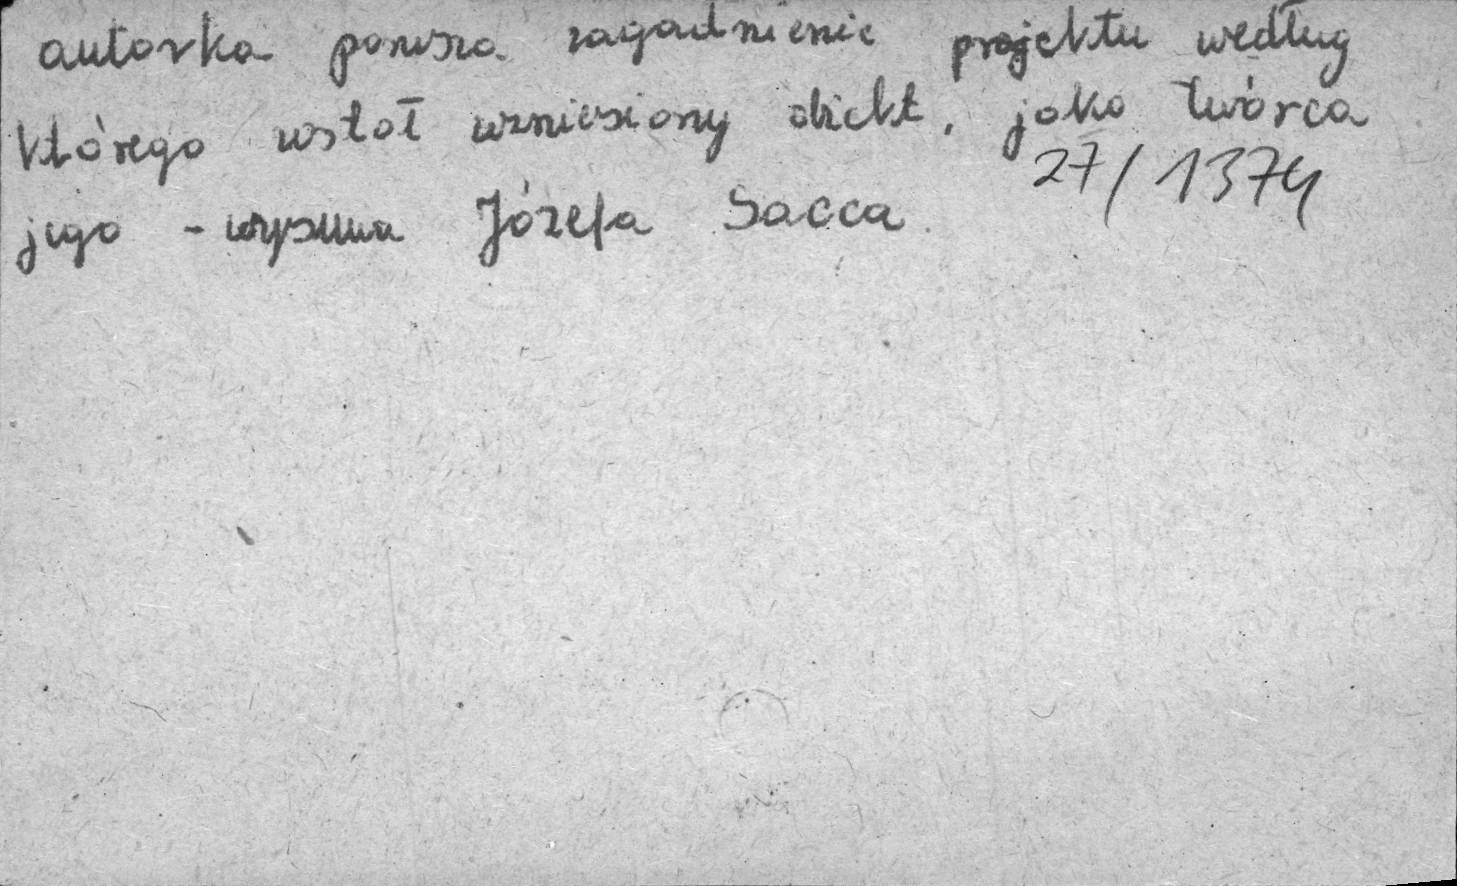 autorka porusza zagadnienie projektu według
którego wstał wzniesiony obiekt, jako twórca
27/1374
jego - wysuwa Józefa Sacca